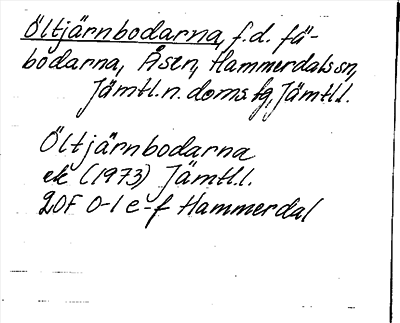 Öltjärnbodarna, f.d. fä-
bodarna, Åsen, Hammerdals sn,
Jämtl. n. doms fg, Jämtl l.
Öltjärnbodarna
ek (1973) Jämtl.l.
20F 0-1 e-f Hammerdal